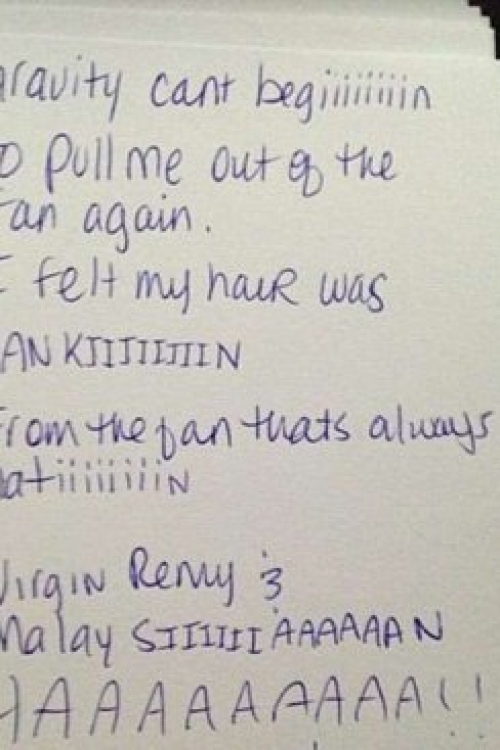 gravity cant begiiiiiiiin
o pull me out of the
fan again.
I felt my haiR was
ANKIIIIIIIIN
From the fan thats always
atiiiiiiiiiN
VirgIN Remy &
malay SIIIIIIAAAAAAN
HAAAAAAAAA!!